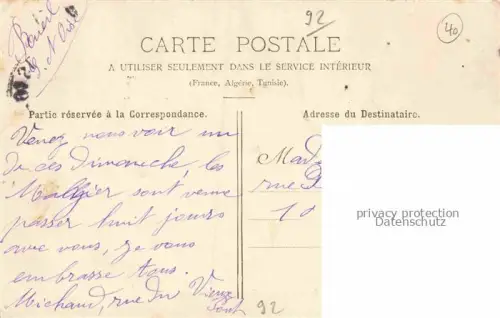 92
40
CARTE POSTALE
A UTILISER SEULEMENT DANS LE SERVICE INTÉRIEUR
(France, Algérie, Tunisie)
Partie réservée à la Correspondance.
Adresse du Destinataire.
Venez nous voir un
de ces Dimanche, les
sont venue
passer huit jours
avec vous, je vous
embrasse tous.
Michaud, rue du Vieux
Pont
Mad
rue
10
privacy protection
Datenschutz
92